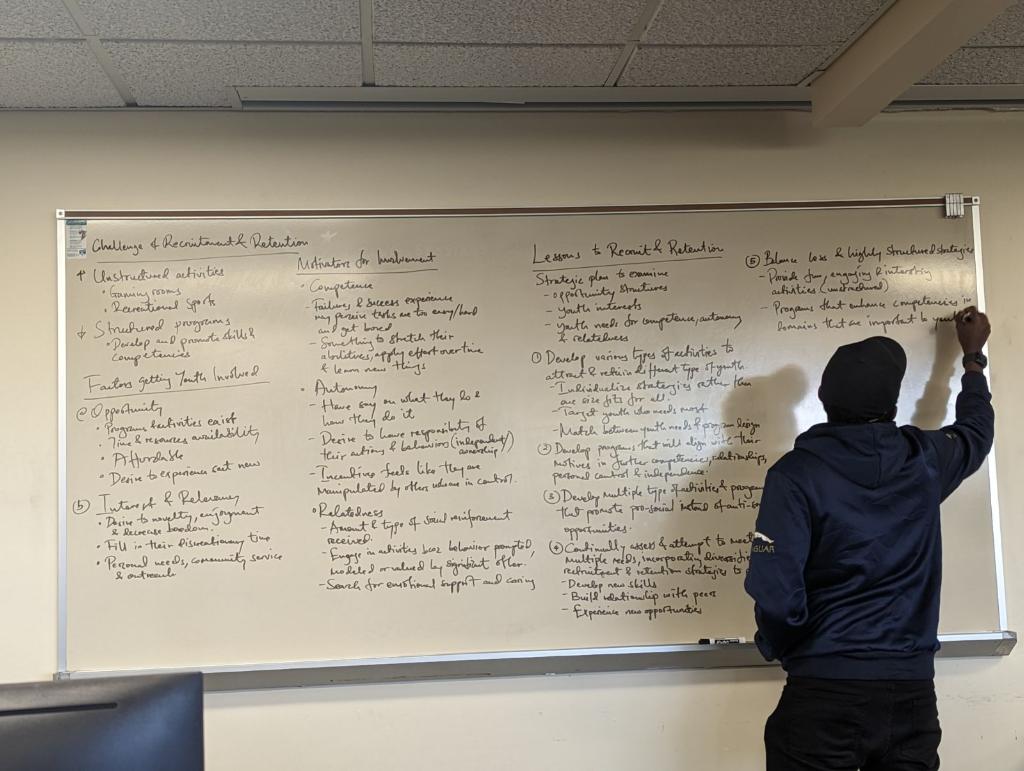 Challenge of Recruitment & Retention
Unstructured activities
• Gaming rooms
• Recreational Sports
Structured programs
• Develop and promote skills &
competencies
Factors getting Youth Involved
@ Opportunity
• Programs & activities exist
• Time & resources availability
• Affordable
• Desire to experience new
⑤ Interest & Relevancy
• Desire to novelty, enjoyment
& decrease boredom.
• Fill in their discretionary time
• Personal needs, community service
& outreach
Motivators for Involvement
• Competence
- Failures & success experience
may perceive tasks are too easy/hard
and get bored
- Something to stretch their
abilities, apply effort over time
& learn new things
• Autonomy
- Have say on what they do &
how they do it
- Desire to have responsibility of
their actions & behaviors (independent/
ownership)
- Incentives feels like they are
manipulated by others who are in control.
• Relatedness
- Amount & type of social reinforcement
received.
- Engage in activities bcoz behavior prompted,
modeled or valued by significant other.
- Search for emotional support and caring
Lessons to Recruit & Retention
Strategic plan to examine
- opportunity structures
- youth interests
- youth needs for competence, autonomy
& relatedness
① Develop various types of activities to
attract & retain different type of youth
- Individualize strategies rather than
one size fits for all.
- Target youth who needs most
- Match between youth needs & program design
② Develop programs that will align with their
motives in further competencies, relationships,
personal control & independence.
③ Develop multiple type of activities & program
that promote pro-social instead of anti-
opportunities.
④ Continually assess & attempt to meet
multiple needs, incorporating
recruitment & retention strategies to
- Develop new skills
- Build relationship with peers
- Experience new opportunities
⑤ Balance less & highly structured strategies
- Provide fun, engaging & interesting
activities (unstructured)
- Programs that enhance competencies in
domains that are important to
GUAR